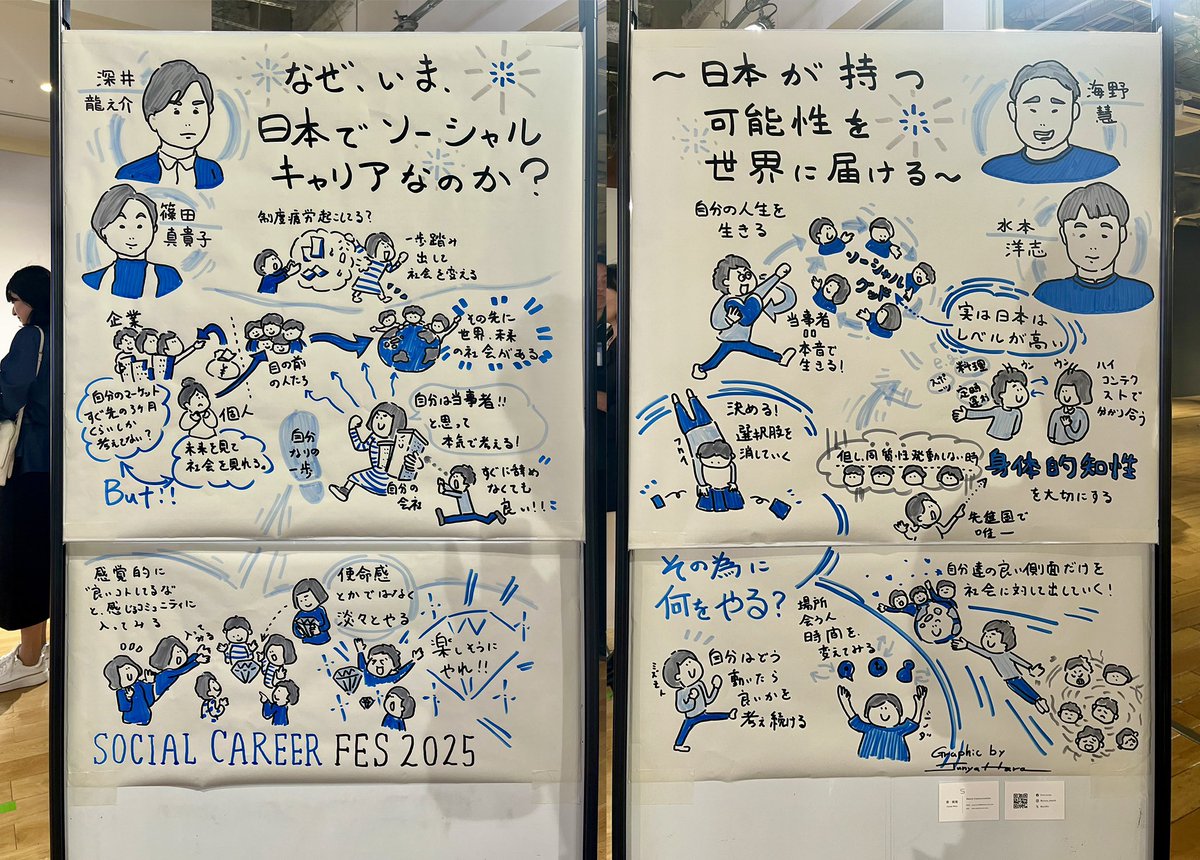 深井
龍之介
なぜ、いま、
日本でソーシャル
キャリアなのか?
篠田
真貴子
制度疲労起こしてる?
一歩踏み
出して
社会を変える
企業
目の前
の人たち
その先に
世界、未来
の社会がある
自分のマーケット
すぐ先の3ヶ月
くらいしか
考えてない?
個人
未来を見て
社会を見れる。
But!!
自分
なりの
一歩
自分は当事者!!
と思って
本気で考える!
自分の
会社
すぐに辞め
なくても
良い!!
感覚的に
"良いコトしてるな"
と、感じるコミュニティに
入ってみる
入って
みる
使命感
とかではなく
淡々とやる
楽しそうに
やれ!!
SOCIAL CAREER FES 2025
〜日本が持つ
可能性を
世界に届ける〜
海野
慧
水本
洋志
自分の人生を
生きる
ソーシャル
グッド
当事者
=
本音で
生きる!
実は日本は
レベルが高い
料理
スポーツ
定時
運行
ウン
ウン
ハイ
コンテク
ストで
分かり合う
決める!
選択肢を
消していく
フカイ
但し、同質性発動しない時
身体的知性
を大切にする
先進国で
唯一
その為に
何をやる?
場所
会う人
時間を、
変えてみる
自分達の良い側面だけを
社会に対して出していく!
ミズモト
自分はどう
動いたら
良いかを
考え続ける
Graphic by
Junya Hara